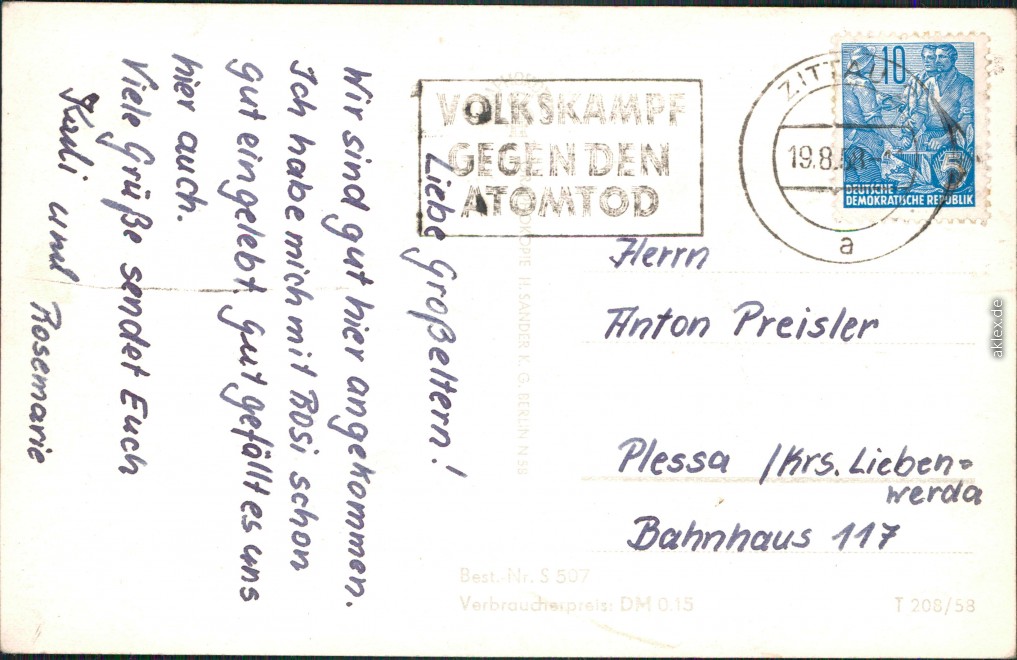 Liebe Großeltern!
Wir sind gut hier angekommen.
Ich habe mich mit Rosi schon
gut eingelebt. Gut gefällt es uns
hier auch.
Viele Grüße sendet Euch
und Rosemarie
VOLKSKAMPF
GEGEN DEN
ATOMTOD
ZITTAU
19.8.58
a
10
DEUTSCHE
DEMOKRATISCHE REPUBLIK
Herrn
Anton Preisler
Plessa /Krs. Lieben=
werda
Bahnhaus 117
H. SANDER K. G. BERLIN N 58
Best.-Nr. S 507
Verbraucherpreis: DM 0.15
T 208/58
aklex.de